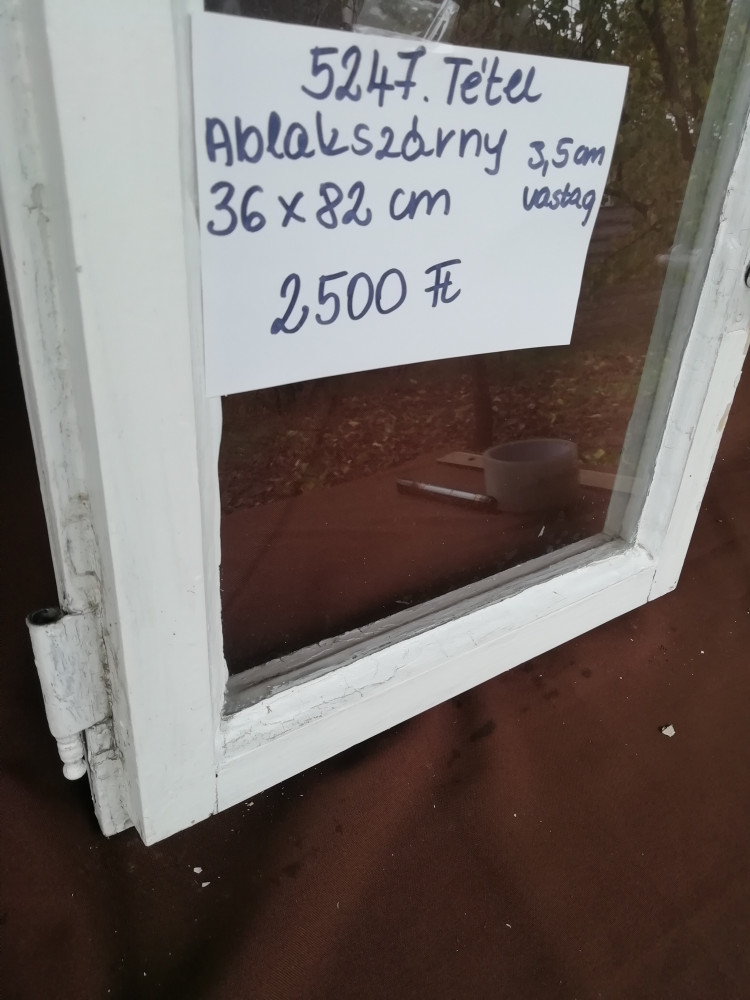 5247. Tétel
Ablakszárny 3,5 cm
36 x 82 cm vastag
2500 Ft